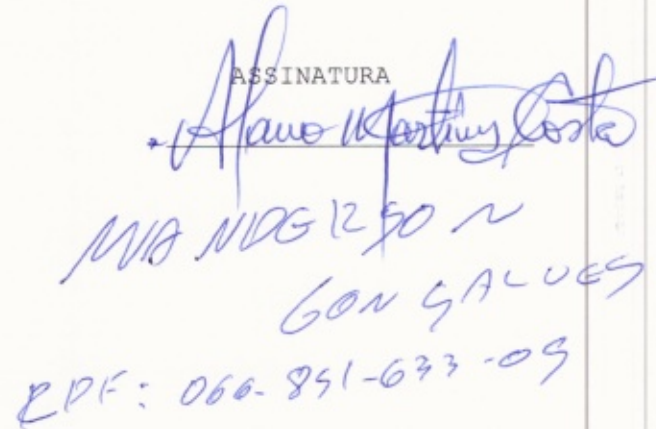 ASSINATURA
Alano Martins Costa
WANDERSON
GONÇALVES
CPF: 066-851-633-09